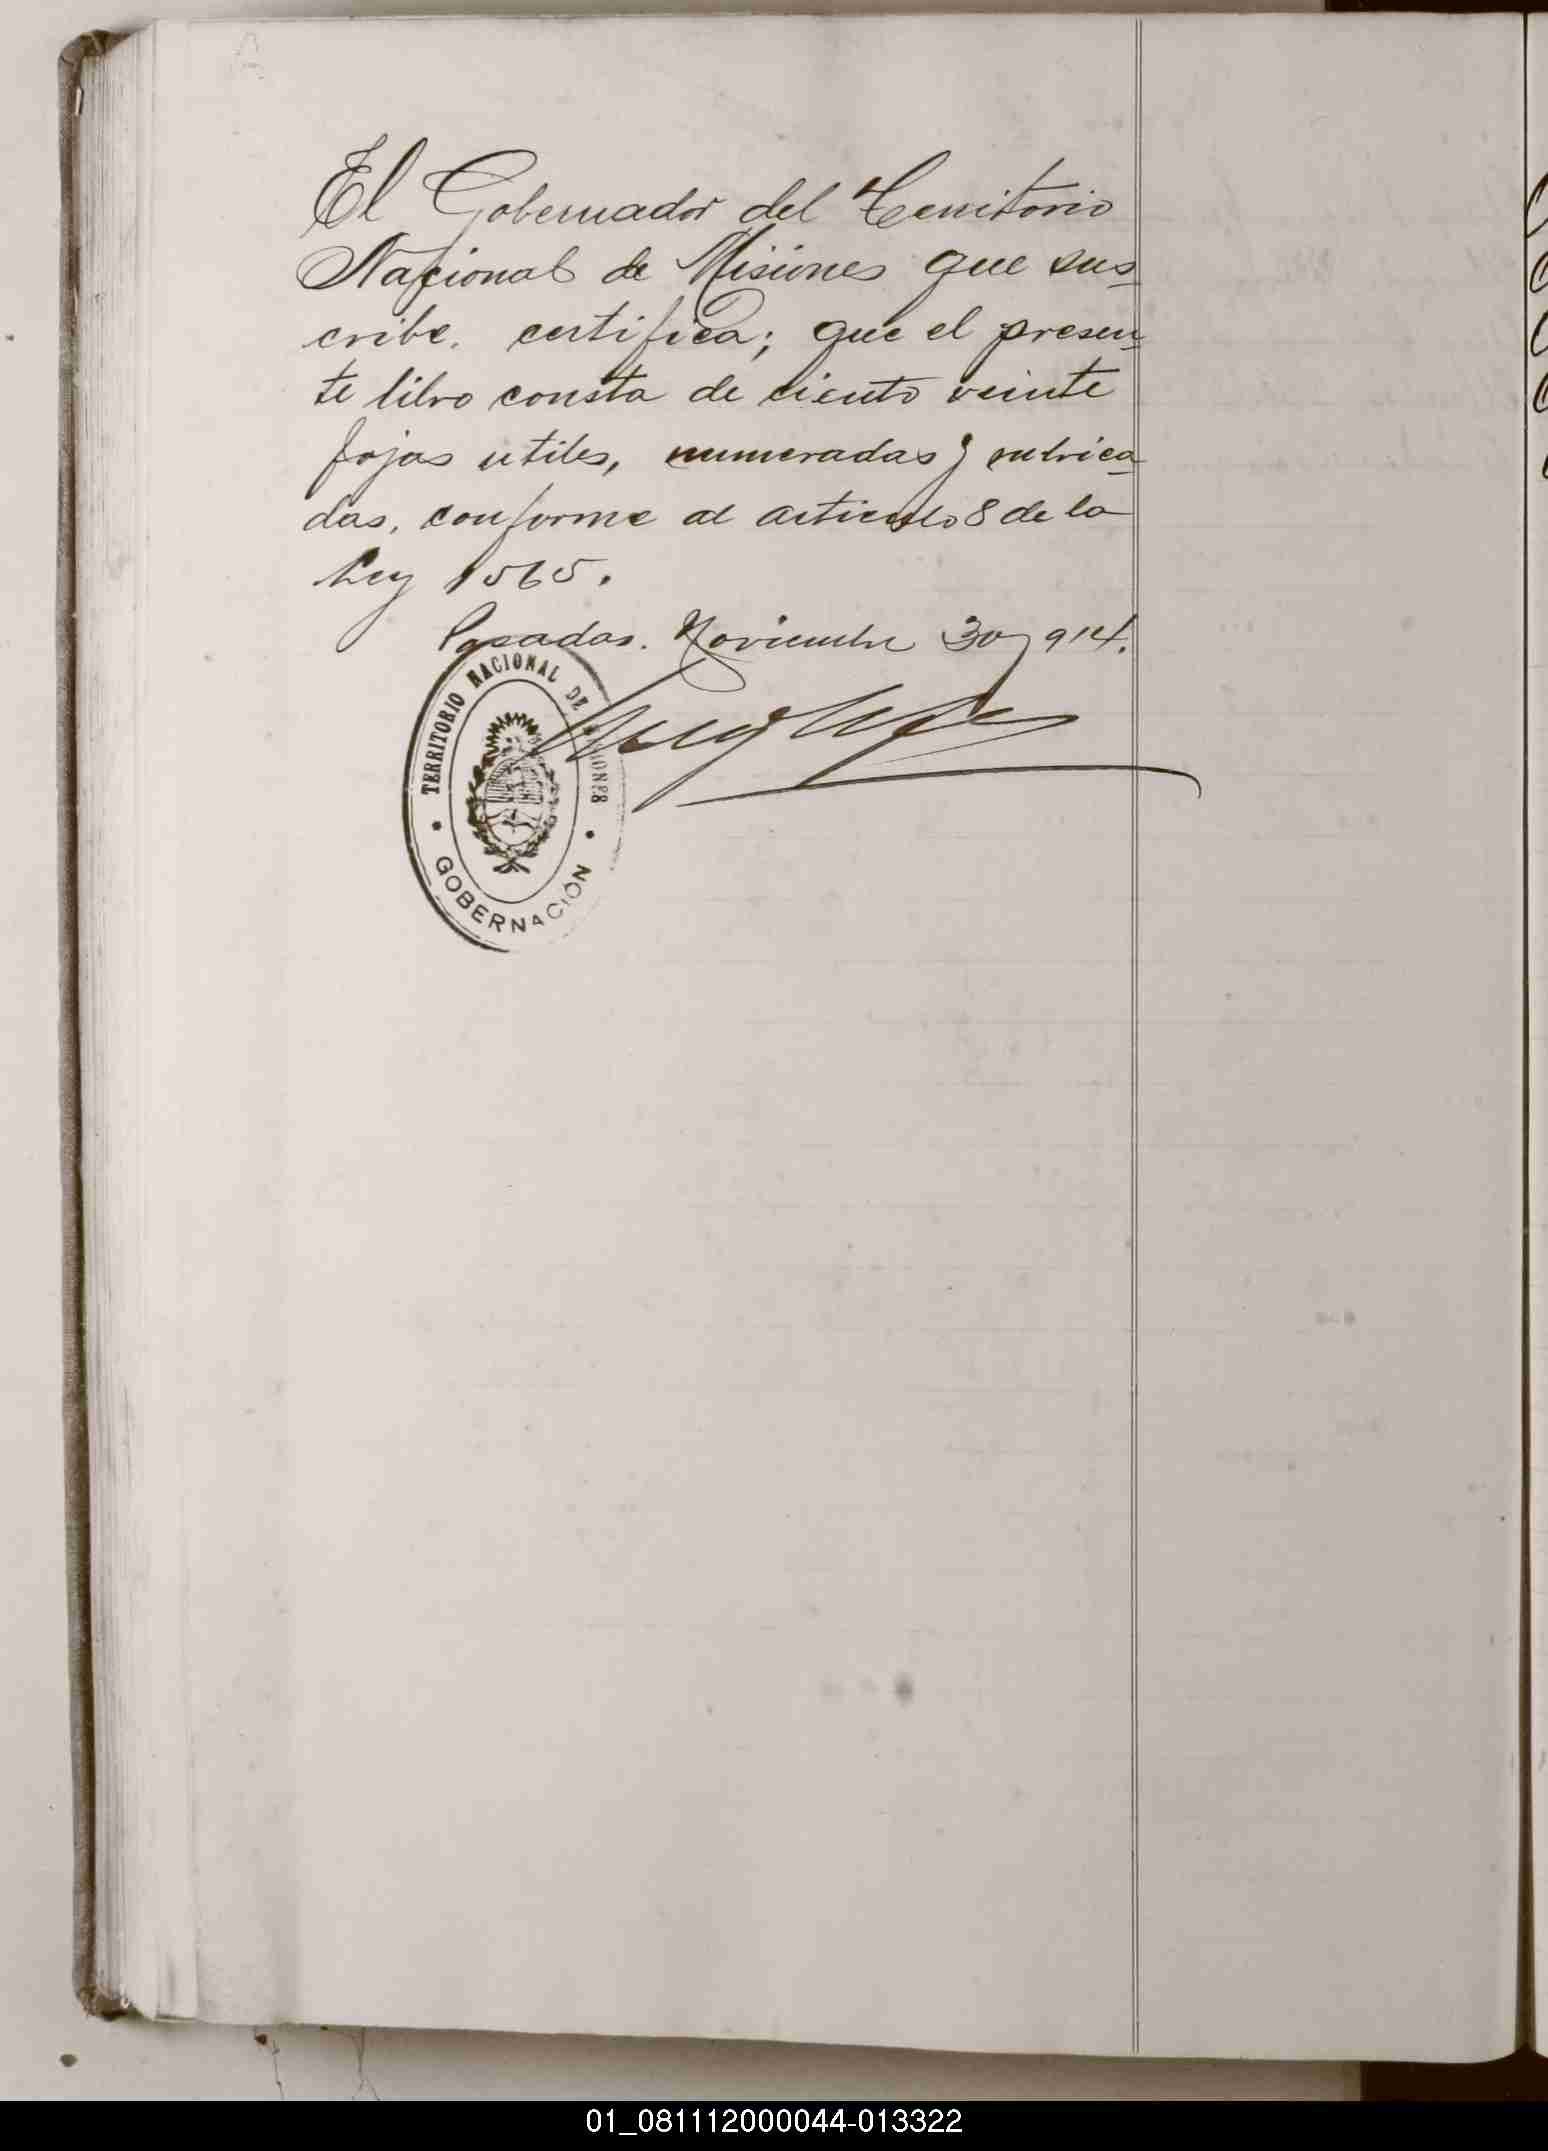 El Gobernador del Territorio
Nacional de Misiones que sus-
cribe, certifica; que el presen-
te libro consta de ciento veinte
fojas utiles, numeradas y rubrica-
das, conforme al articulo 8 de la
Ley 1565.
Posadas. Noviembre 30 914.
TERRITORIO NACIONAL DE MISIONES
GOBERNACIÓN
01_081112000044-013322